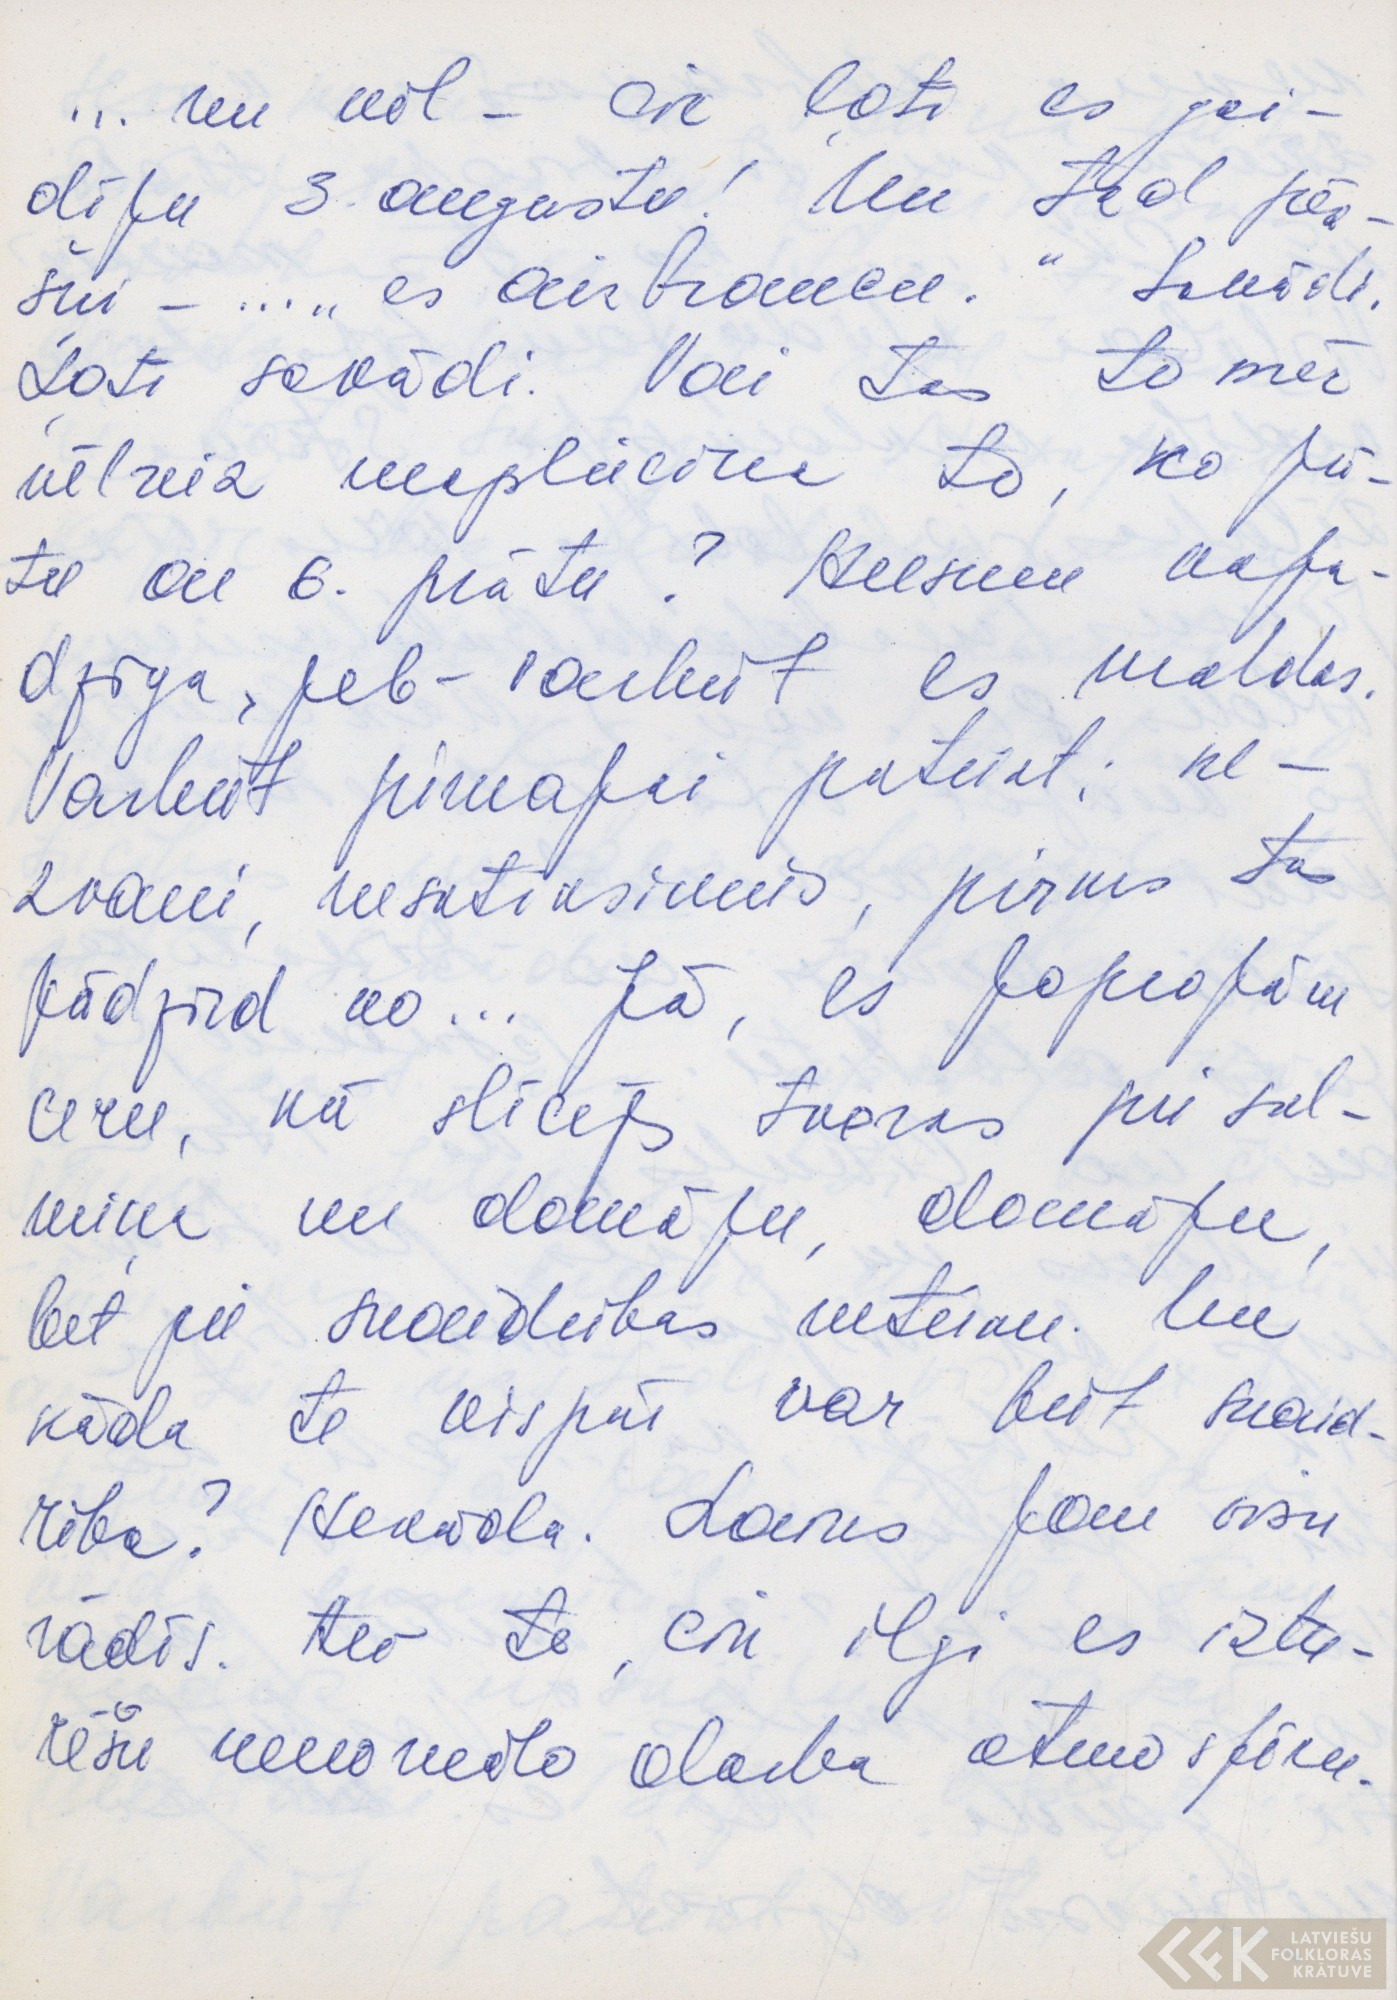 ... un vēl - cik ļoti es gai-
dīju 3. augustu! Un tad pēk-
šņi - ... „es aizbraucu." Savādi.
Ļoti savādi. Vai tas tomēr
vēlreiz neapliecina to, ko jū-
tu ar 6. prātu? Neesmu vaja-
dzīga, jeb - varbūt es maldos.
Varbūt pirmajai pateikt: ne-
zvani, nesatiksimies, pirms tas
jādzird no ... Jā, es joprojām
ceru, kā slīcējs tveras pie sal-
miņa un domāju, domāju,
bet pie skaidrības netieku. Un
kāda te vispār var būt skaid-
rība? Nekāda. Laiks jau visu
rādīs. Arī to, cik ilgi es iztu-
rēšu nenormālo darba atmosfēru.
LATVIEŠU
FOLKLORAS
KRĀTUVE